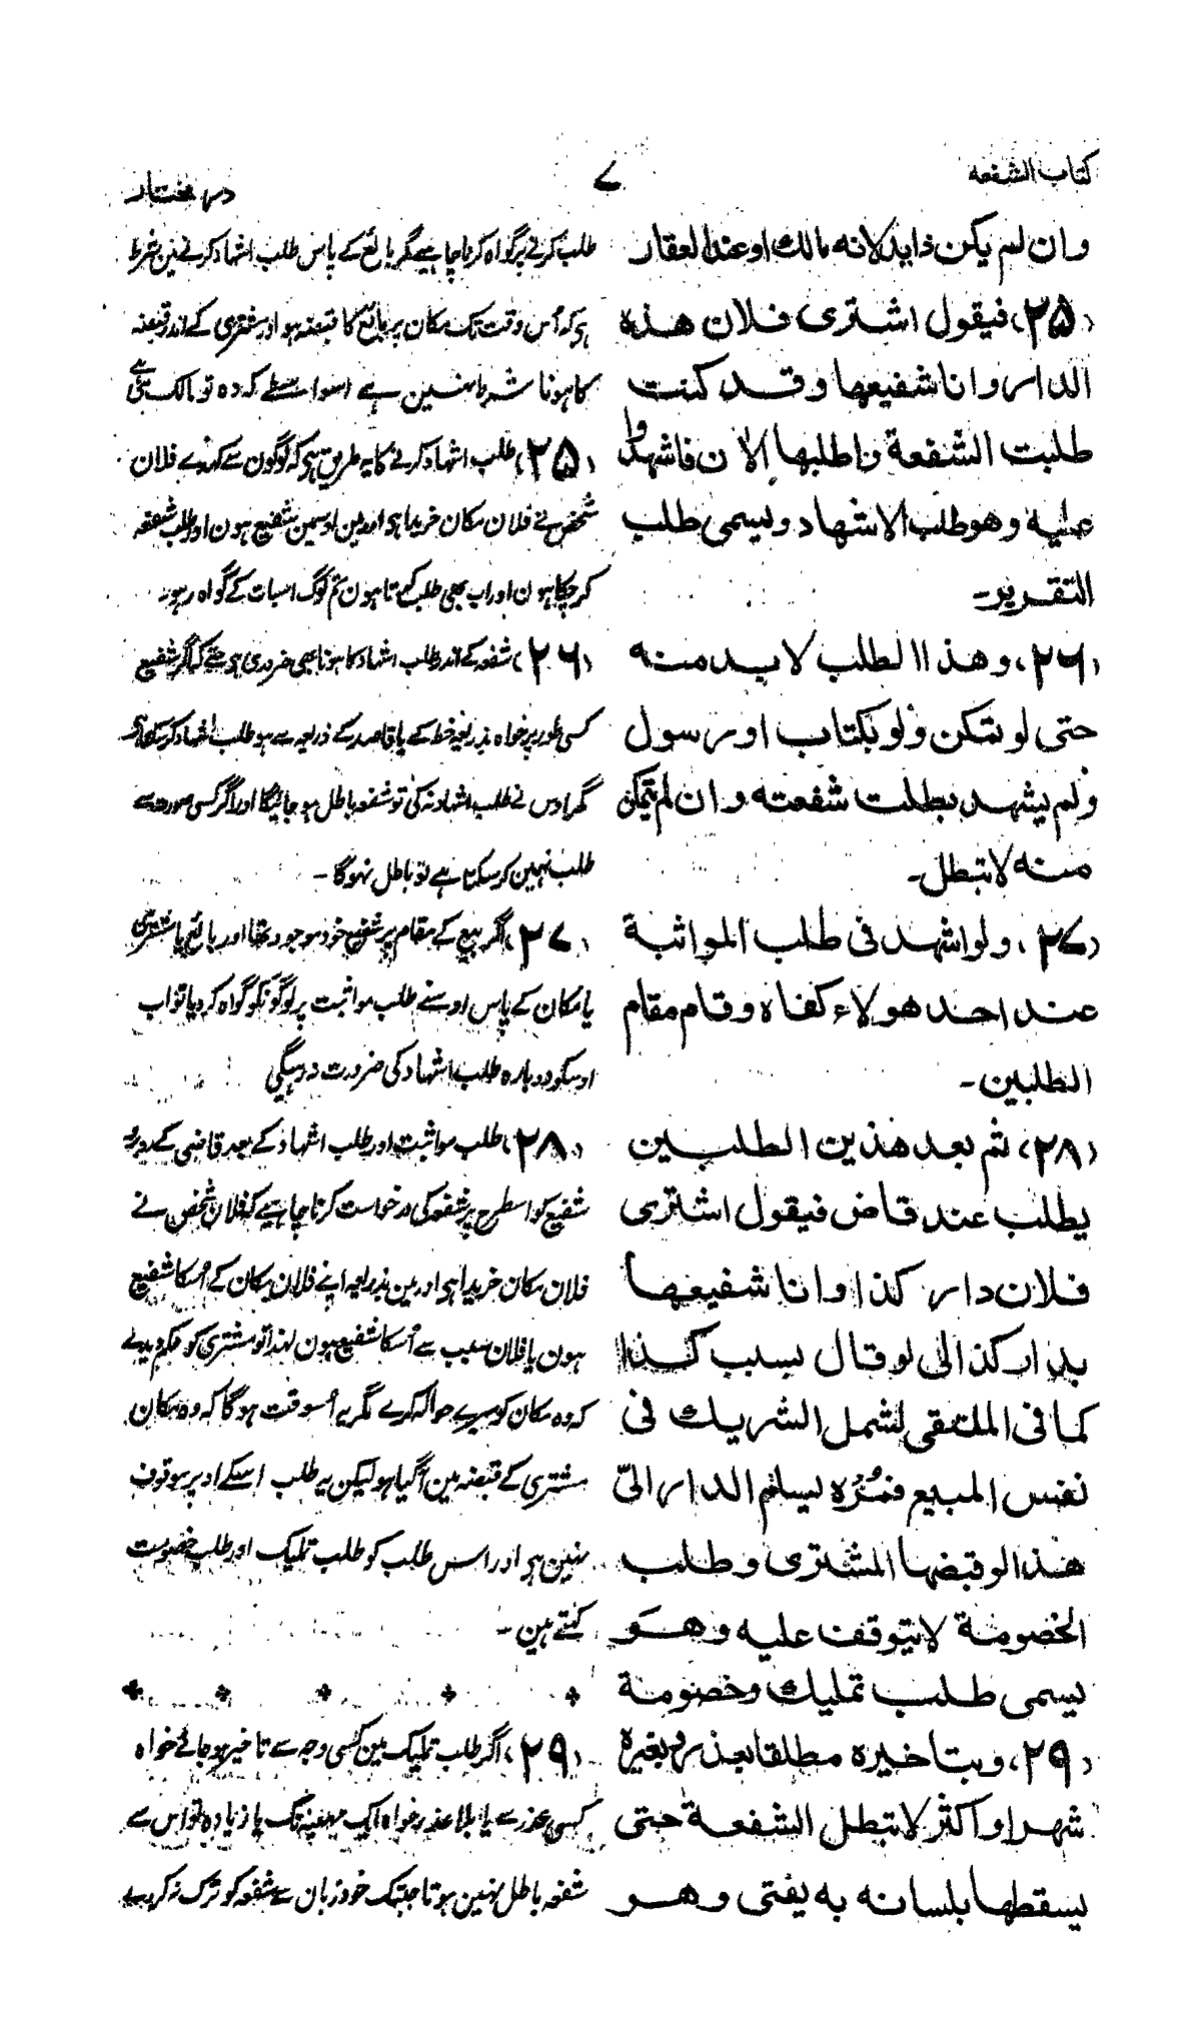 كتاب الشفعه
۷
در مختار
وان لم يكن ذا يد لانه مالك او عند العقار
(۲۵) فيقول اشترى فلان هذه
الدار وانا شفيعها وقد كنت
طلبت الشفعة واطلبها الان فاشهدوا
عليه وهو طلب الاشهاد ويسمى طلب
التقرير۔
(۲۶) وهذا الطلب لابد منه
حتى لو تمكن ولو بكتاب او رسول
ولم يشهد بطلت شفعته وان لم يتمكن
منه لا تبطل۔
(۲۷) ولو اشهد فى طلب المواثبة
عند احد هولاء كفاه وقام مقام
الطلبين۔
(۲۸) ثم بعد هذين الطلبين
يطلب عند قاض فيقول اشترى
فلان دار كذا وانا شفيعها
بدار كذا لى لو قال بسبب كذا
كما فى الملتقى لشمل الشريك فى
نفس المبيع فمُرْه يسلم الدار الىّ
هذا لو قبضها المشترى وطلب
الخصومة لا يتوقف عليه وهو
يسمى طلب تمليك وخصومة
(۲۹) وبتاخيره مطلقا بعذر وبغيره
شهرا او اكثر لا تبطل الشفعة حتى
يسقطها بلسانه به يفتى وهو
طلب کرنے پر گواہ کرنا چاہیے مگر بائع کے پاس طلب اشہاد کرنے مین شرط
ہی کہ اُس وقت تک مکان پر بائع کا قبضہ ہو اور مشتری کے اندر قبضہ
کا ہونا شرط نہین ہے اسواسطے کہ وہ تو مالک ہی ہے
(۲۵) طلب اشہاد کرنے کا یہ طریق ہی کہ لوگون سے کہدے فلان
شخص نے فلان مکان خریدا ہی اور مین اوسمین شفیع ہون اور طلب شفعہ
کر چکا ہون اور اب بھی طلب کرتا ہون تم لوگ اسبات کے گواہ رہو۔
(۲۶) شفعہ کے اندر طلب اشہاد کا ہونا بھی ضروری ہی حتے کہ اگر شفیع
کسی طور پر خواہ بذریعہ خط کے یا قاصد کے ذریعہ سے ہو طلب اشہاد کر سکتا ہی
مگر اوس نے طلب اشہاد نہ کی تو شفعہ باطل ہو جائیگا اور اگر کسی صورت سے
طلب نہین کر سکتا ہے تو باطل نہوگا ۔
(۲۷) اگر بیع کے مقام پر شفیع خود موجود تھا اور بائع یا مشتری
یا مکان کے پاس اوسنے طلب مواثبت پر لوگونکو گواہ کر دیا تو اب
اوسکو دوبارہ طلب اشہاد کی ضرورت نہ رہیگی
(۲۸) طلب مواثبت اور طلب اشہاد کے بعد قاضی کے روبرو
شفیع کو اسطرح پر شفعہ کی درخواست کرنا چاہیے کہ فلان شخص نے
فلان مکان خریدا ہی اور مین بذریعہ اپنے فلان مکان کے اُسکا شفیع
ہون یا فلان سبب سے اُسکا شفیع ہون لہذا تو مشتری کو حکم دیدے
کہ وہ مکان کو میرے حوالہ کرے مگر یہ اُسوقت ہوگا کہ وہ مکان
مشتری کے قبضہ مین آگیا ہو لیکن یہ طلب اسکے اوپر موقوف
نہین ہی اور اس طلب کو طلب تملیک اور طلب خصومت
کہتے ہین ۔
(۲۹) اگر طلب تملیک مین کسی وجہ سے تاخیر ہو جائے خواہ
کسی عذر سے یا بلا عذر خواہ ایک مہینہ تک یا زیادہ تو اس سے
شفعہ باطل نہین ہوتا جبتک خود زبان سے شفعہ کو ترک نہ کر دے